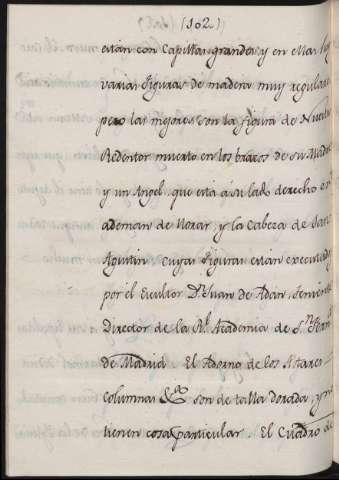 (102.)
están con Capillas grandes, y en ellas hay
varias figuras de madera muy regulares
pero las mejores son la figura de Nuestro
Redentor muerto en los brazos de su Madre
y un Angel, que está á su lado derecho en
ademan de llorar, y la Cabeza de San
Agustin cuyas figuras están executadas
por el Escultor Dn. Juan de Adan, Teniente
Director de la Rl. Academia de Sn. Fern
de Madrid. El Adorno de los Altares
columnas &a. son de talla dorada, y no
tienen cosa particular. El Cuadro de